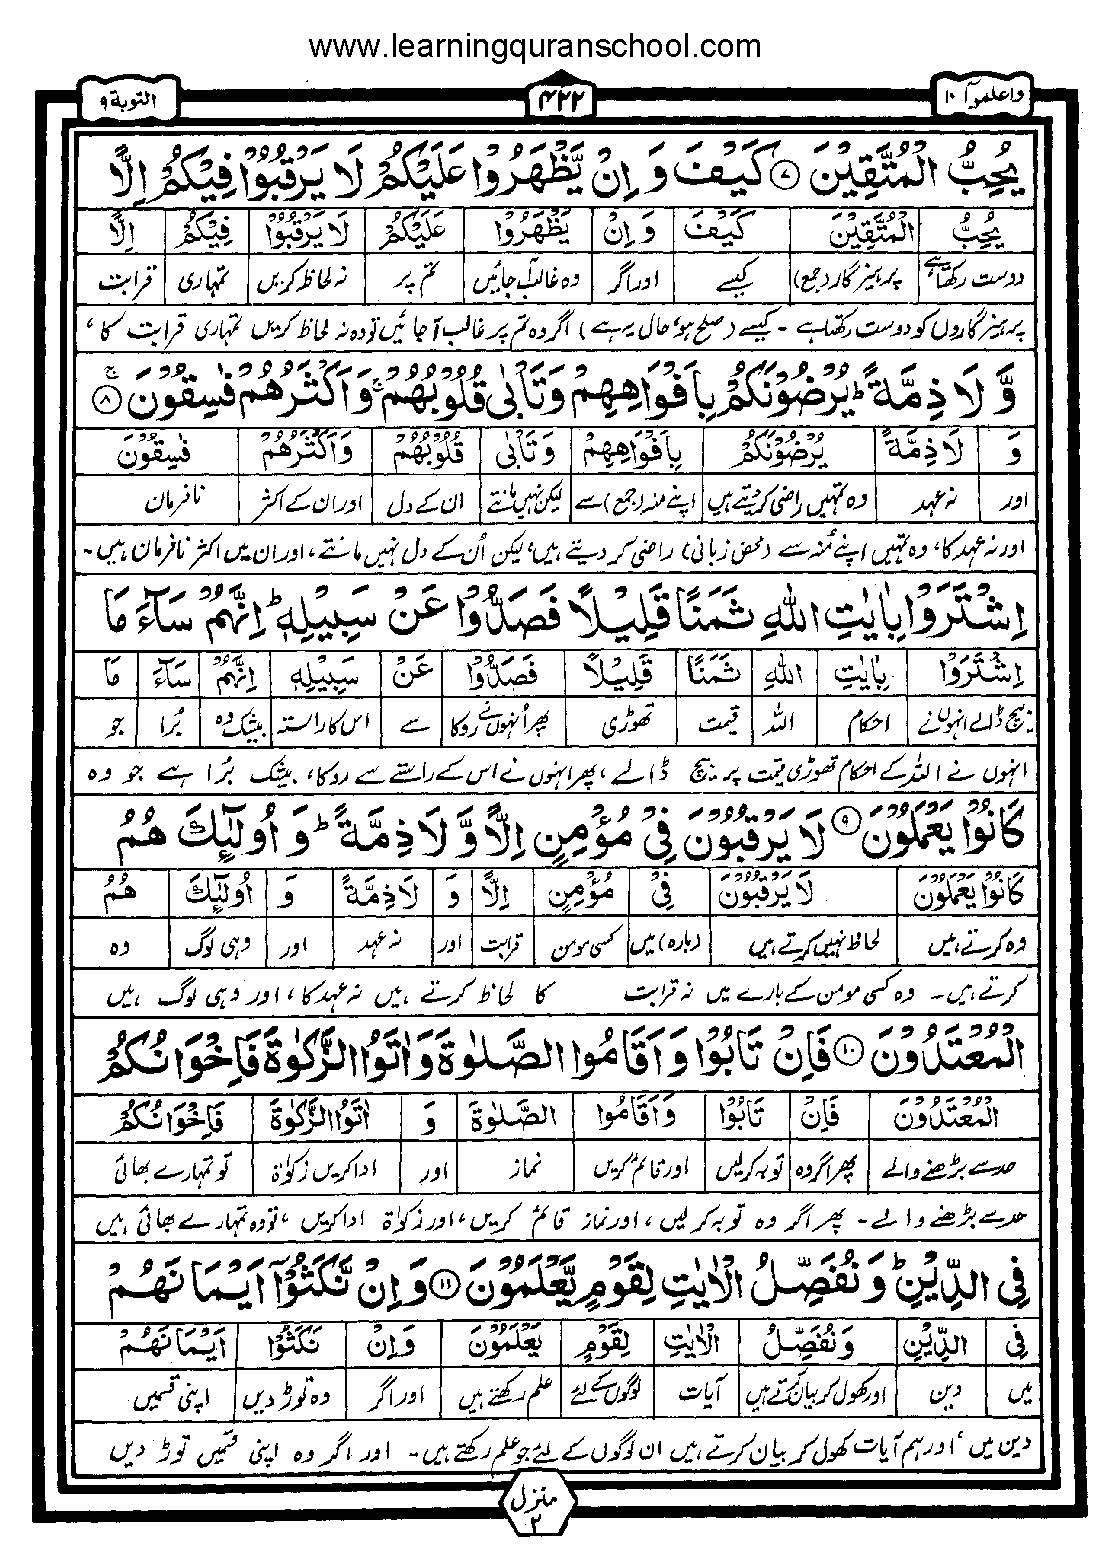 www.learningquranschool.com
واعلموآ ١٠
٤٢٢
التوبة ٩
يُحِبُّ الْمُتَّقِيْنَ ۝٧ كَيْفَ وَ اِنْ يَّظْهَرُوْا عَلَيْكُمْ لَا يَرْقُبُوْا فِيْكُمْ اِلًّا
يُحِبُّ الْمُتَّقِيْنَ كَيْفَ وَاِنْ يَّظْهَرُوْا عَلَيْكُمْ لَا يَرْقُبُوْا فِيْكُمْ اِلًّا
دوست رکھتا ہے پرہیزگار (جمع) کیسے اور اگر وہ غالب آجائیں تم پر نہ لحاظ کریں تمہاری قرابت
پرہیزگاروں کو دوست رکھتا ہے - کیسے (صلح ہو' حال یہ ہے) اگر وہ تم پر غالب آ جائیں تو وہ نہ لحاظ کریں تمہاری قرابت کا'
وَّ لَا ذِمَّةً ؕ يُرْضُوْنَكُمْ بِاَفْوَاهِهِمْ وَتَاْبٰى قُلُوْبُهُمْ ۚ وَاَكْثَرُهُمْ فٰسِقُوْنَ ۝٨
وَ لَا ذِمَّةً يُرْضُوْنَكُمْ بِاَفْوَاهِهِمْ وَتَاْبٰى قُلُوْبُهُمْ وَاَكْثَرُهُمْ فٰسِقُوْنَ
اور نہ عہد وہ تمہیں راضی کر دیتے ہیں اپنے منہ (جمع) سے لیکن نہیں مانتے ان کے دل اور ان کے اکثر نافرمان
اور نہ عہد کا' وہ تمہیں اپنے مُنہ سے (محض زبانی) راضی کر دیتے ہیں' لیکن اُن کے دل نہیں مانتے، اور ان میں اکثر نافرمان ہیں۔
اِشْتَرَوْا بِاٰيٰتِ اللّٰهِ ثَمَنًا قَلِيْلًا فَصَدُّوْا عَنْ سَبِيْلِهٖ ؕ اِنَّهُمْ سَآءَ مَا
اِشْتَرَوْا بِاٰيٰتِ اللّٰهِ ثَمَنًا قَلِيْلًا فَصَدُّوْا عَنْ سَبِيْلِهٖ اِنَّهُمْ سَآءَ مَا
بیچ ڈالے انہوں نے احکام اللہ قیمت تھوڑی پھر اُنہوں نے روکا سے اس کا راستہ بیشک وہ بُرا جو
انہوں نے اللہ کے احکام تھوڑی قیمت پر بیچ ڈالے، پھر انہوں نے اس کے راستے سے روکا، بیشک بُرا ہے جو وہ
كَانُوْا يَعْمَلُوْنَ ۝٩ لَا يَرْقُبُوْنَ فِيْ مُؤْمِنٍ اِلًّا وَّ لَا ذِمَّةً ؕ وَ اُولٰٓئِكَ هُمُ
كَانُوْا يَعْمَلُوْنَ لَا يَرْقُبُوْنَ فِيْ مُؤْمِنٍ اِلًّا وَ لَا ذِمَّةً وَ اُولٰٓئِكَ هُمُ
وہ کرتے ہیں لحاظ نہیں کرتے ہیں (بارہ) میں کسی مومن قرابت اور نہ عہد اور وہی لوگ وہ
کرتے ہیں۔ وہ کسی مومن کے بارے میں نہ قرابت کا لحاظ کرتے ہیں نہ عہد کا، اور وہی لوگ ہیں
الْمُعْتَدُوْنَ ۝١٠ فَاِنْ تَابُوْا وَ اَقَامُوا الصَّلٰوةَ وَاٰتَوُا الزَّكٰوةَ فَاِخْوَانُكُمْ
الْمُعْتَدُوْنَ فَاِنْ تَابُوْا وَاَقَامُوا الصَّلٰوةَ وَ اٰتَوُا الزَّكٰوةَ فَاِخْوَانُكُمْ
حد سے بڑھنے والے پھر اگر وہ توبہ کرلیں اور قائم کریں نماز اور ادا کریں زکوٰۃ تو تمہارے بھائی
حد سے بڑھنے والے۔ پھر اگر وہ توبہ کر لیں، اور نماز قائم کریں، اور زکوٰۃ ادا کریں' تو وہ تمہارے بھائی ہیں
فِي الدِّيْنِ ؕ وَ نُفَصِّلُ الْاٰيٰتِ لِقَوْمٍ يَّعْلَمُوْنَ ۝١١ وَ اِنْ نَّكَثُوْٓا اَيْمَانَهُمْ
فِي الدِّيْنِ وَنُفَصِّلُ الْاٰيٰتِ لِقَوْمٍ يَعْلَمُوْنَ وَاِنْ نَكَثُوْا اَيْمَانَهُمْ
میں دین اور کھول کر بیان کرتے ہیں آیات لوگوں کے لئے علم رکھتے ہیں اور اگر وہ توڑ دیں اپنی قسمیں
دین میں' اور ہم آیات کھول کر بیان کرتے ہیں ان لوگوں کے لئے جو علم رکھتے ہیں۔ اور اگر وہ اپنی قسمیں توڑ دیں
منزل ٢